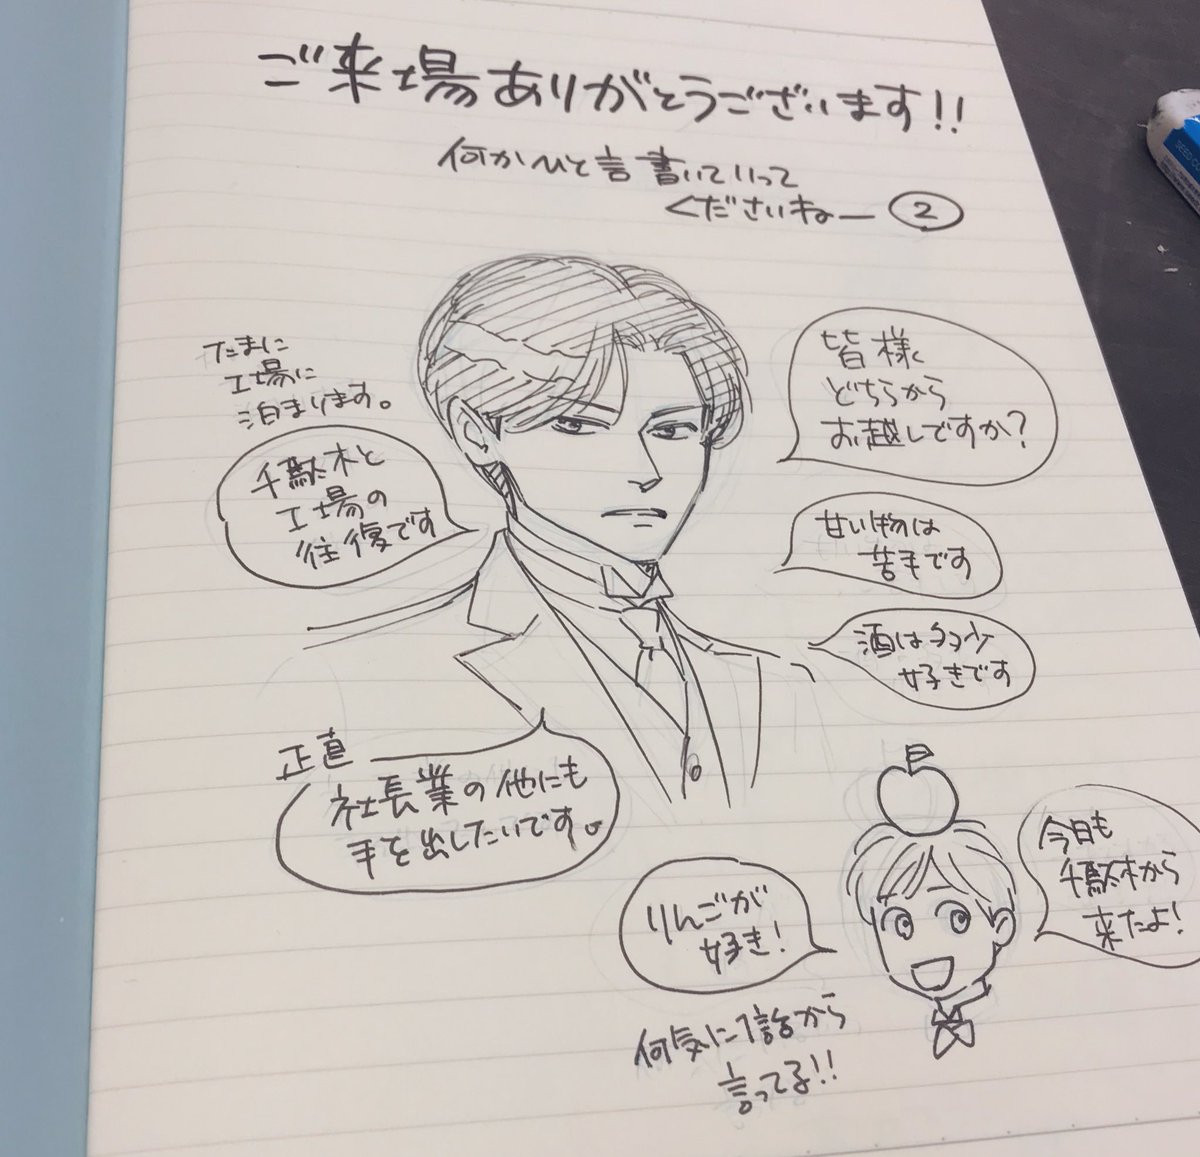 ご来場ありがとうございます!!
何かひと言書いていって
くださいねー ②
たまに
工場に
泊まります。
千駄木と
工場の
往復です
皆様
どちらから
お越しですか?
甘い物は
苦手です
酒は多少
好きです
正直
社長業の他にも
手を出したいです。
りんごが
好き!
今日も
千駄木から
来たよ!
何気に1話から
言ってる!!
SEED